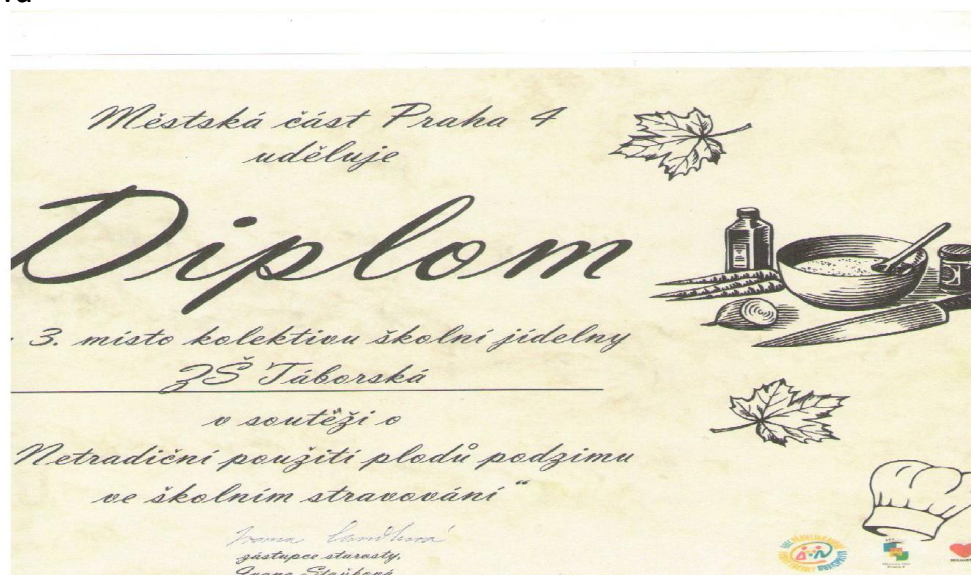 Městská část Praha 4
uděluje
Diplom
3. místo kolektivu školní jídelny
ZŠ Táborská
v soutěži o
Netradiční použití plodů podzimu
ve školním stravování“
zástupce starosty,
Ivana